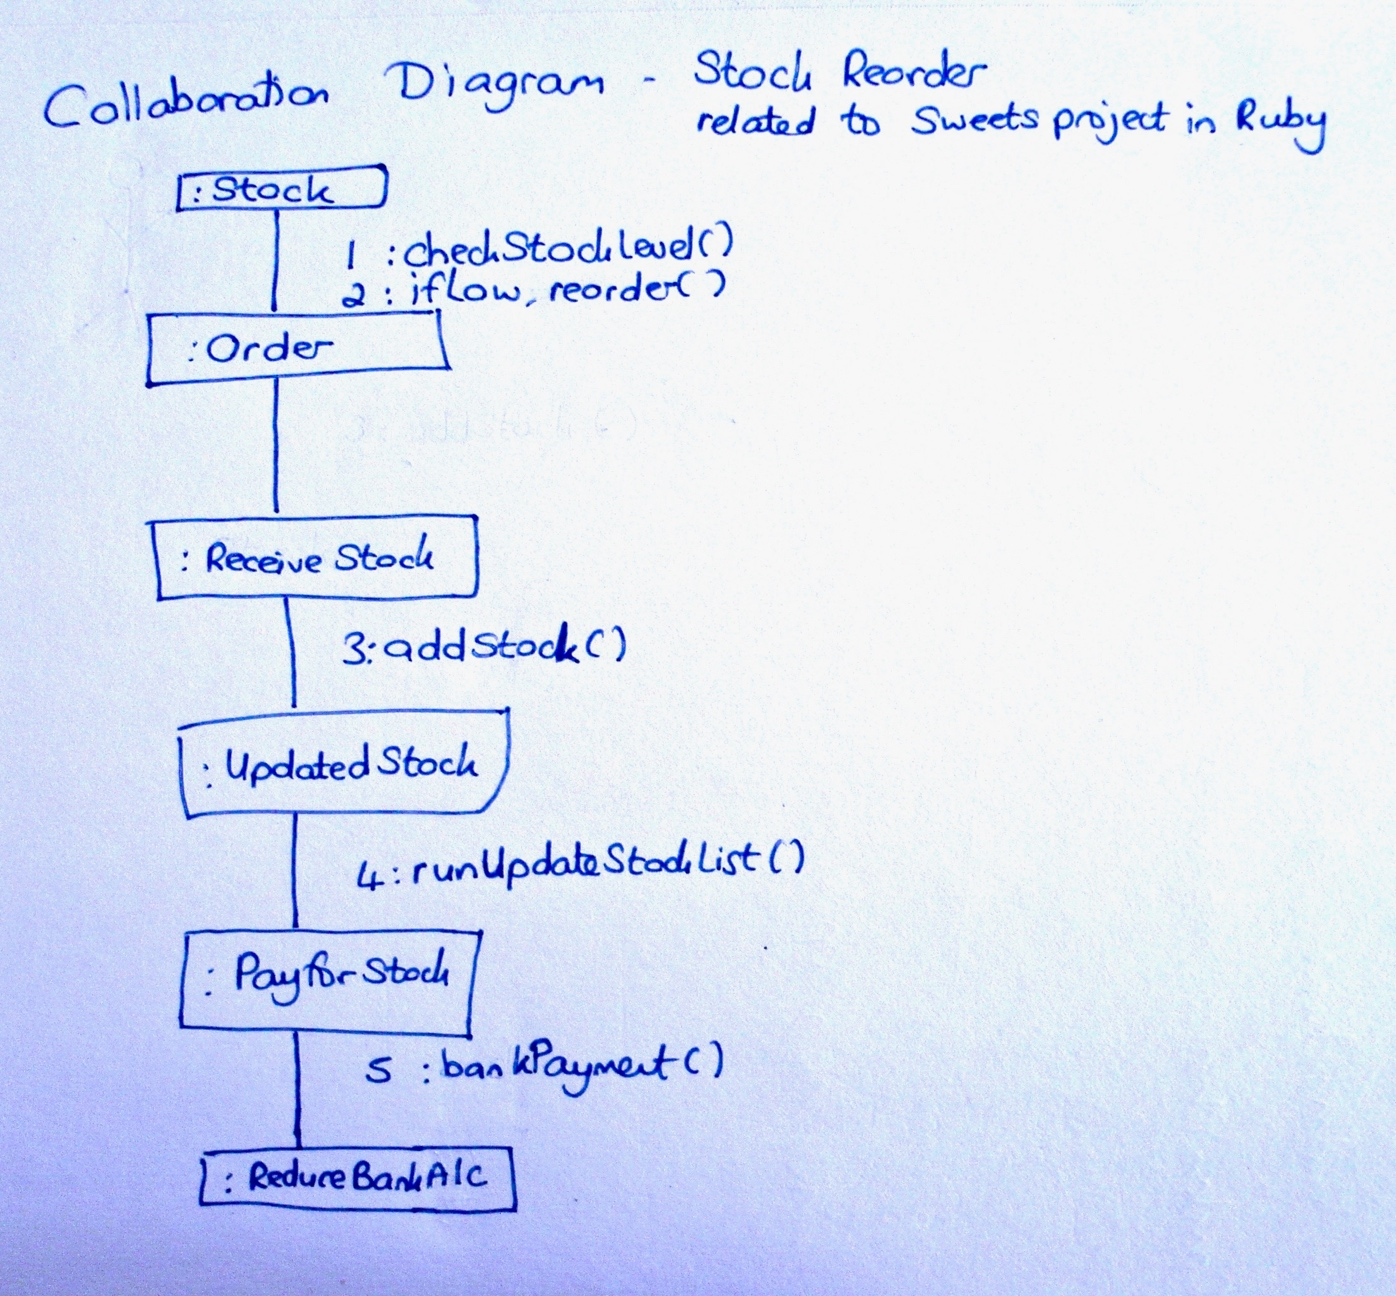 Collaboration Diagram - Stock Reorder
related to Sweets project in Ruby
:Stock
1 :checkStockLevel()
2 : if low, reorder()
:Order
: Receive Stock
3:addStock()
: Updated Stock
4:runUpdateStockList()
: Pay for Stock
5 :bankPayment()
: Reduce Bank A/c